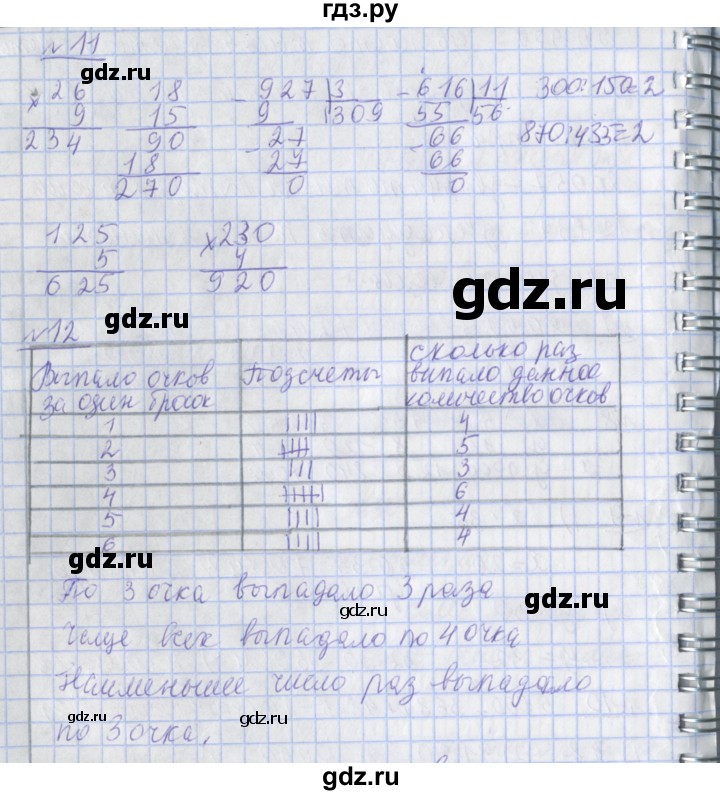 гдз.ру
№11
× 26
9
234
18
15
90
18
270
- 927 | 3
9 | 309
- 27
27
0
- 616 | 11
55 | 56
- 66
66
0
300:150=2
870:435=2
125
5
625
× 230
4
920
gdz.ru
gdz.ru
№12
Выпало очков за один бросок | Подсчеты | сколько раз выпало данное количество очков
1 | |||| | 4
2 | 5
3 | ||| | 3
4 | 6
5 | |||| | 4
6 | |||| | 4
gdz.ru
gdz.ru
По 3 очка выпадало 3 раза
gdz.ru
Чаще всех выпадало по 4 очка
Наименьшее число раз выпадало
gdz.ru
gdz.ru
по 3 очка.
gdz.ru